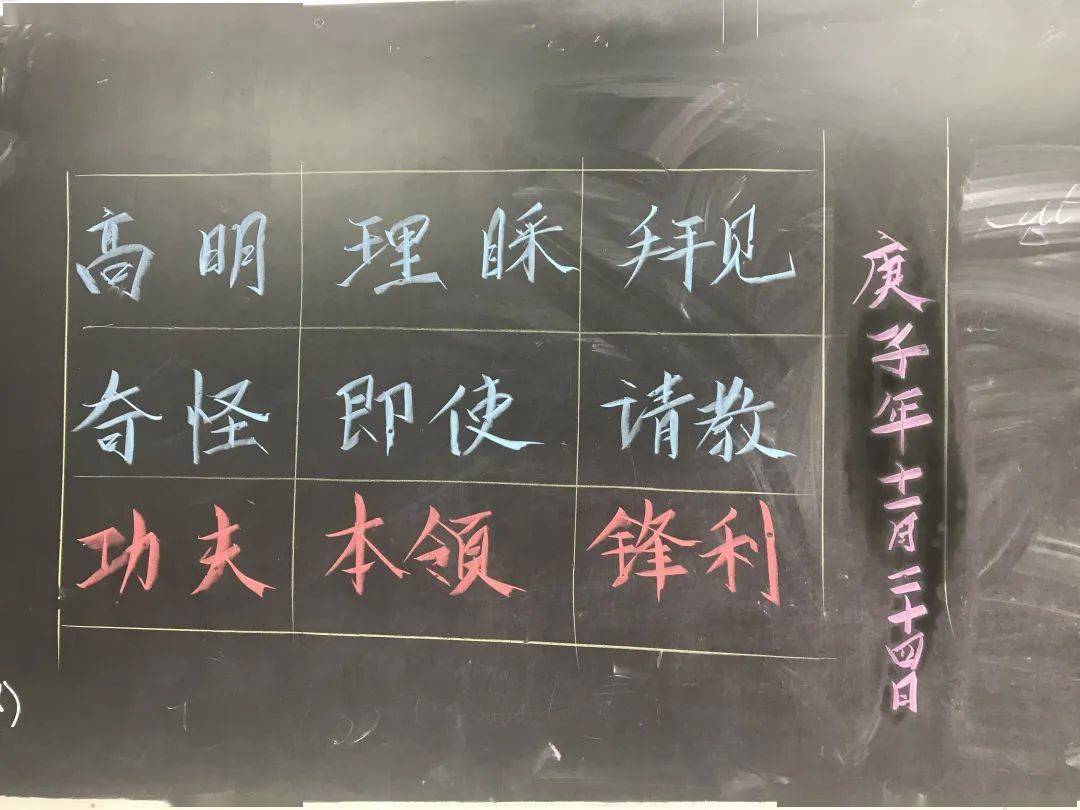 高明 理睬 拜见
奇怪 即使 请教
功夫 本领 锋利
庚子年十二月二十四日